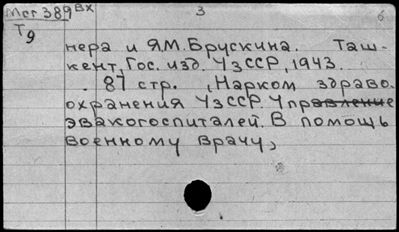 Мсг 389вх 3 6
Т9
нера и Я.М. Брускина. Таш-
кент, Гос. изд. УзССР, 1943.
. 87 стр. (Нарком здраво-
охранения УзССР. Управление
эвакогоспиталей. В помощь
военному врачу,